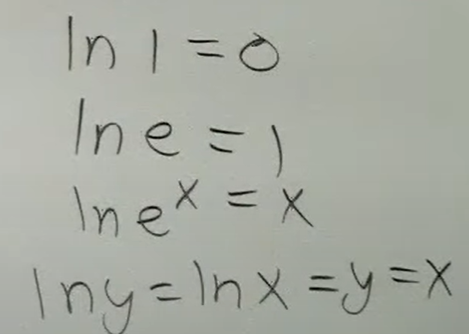 ln 1 = 0
ln e = 1
ln eˣ = x
ln y = ln x = y = x